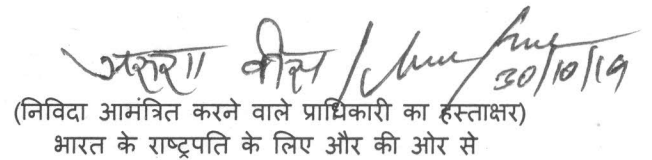 अरुणा बोस / 30/10/19
(निविदा आमंत्रित करने वाले प्राधिकारी का हस्ताक्षर)
भारत के राष्ट्रपति के लिए और की ओर से